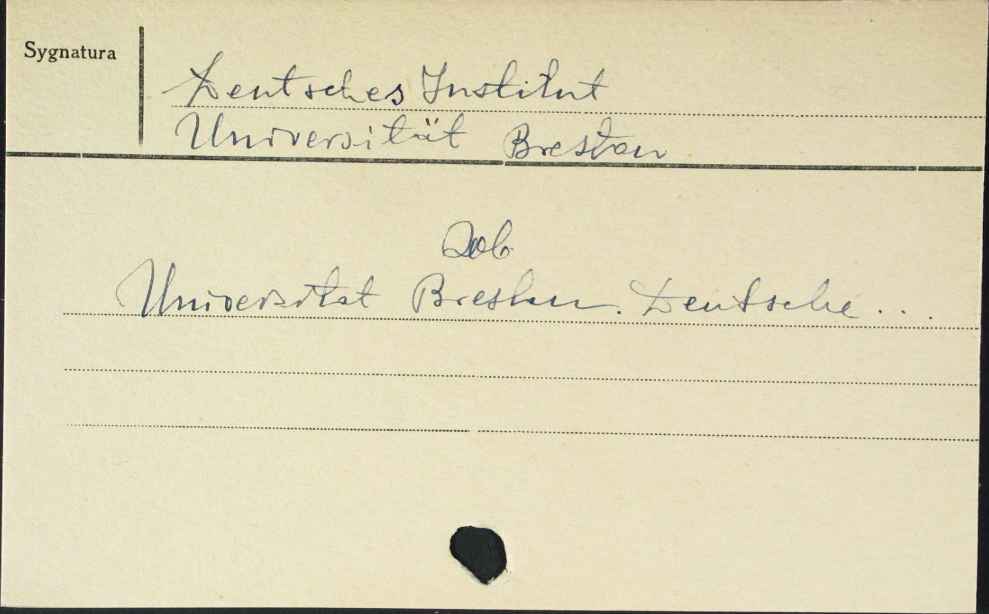 Sygnatura
Deutsches Institut
Universität Breslau
Zob.
Universitat Breslau. Deutsche...